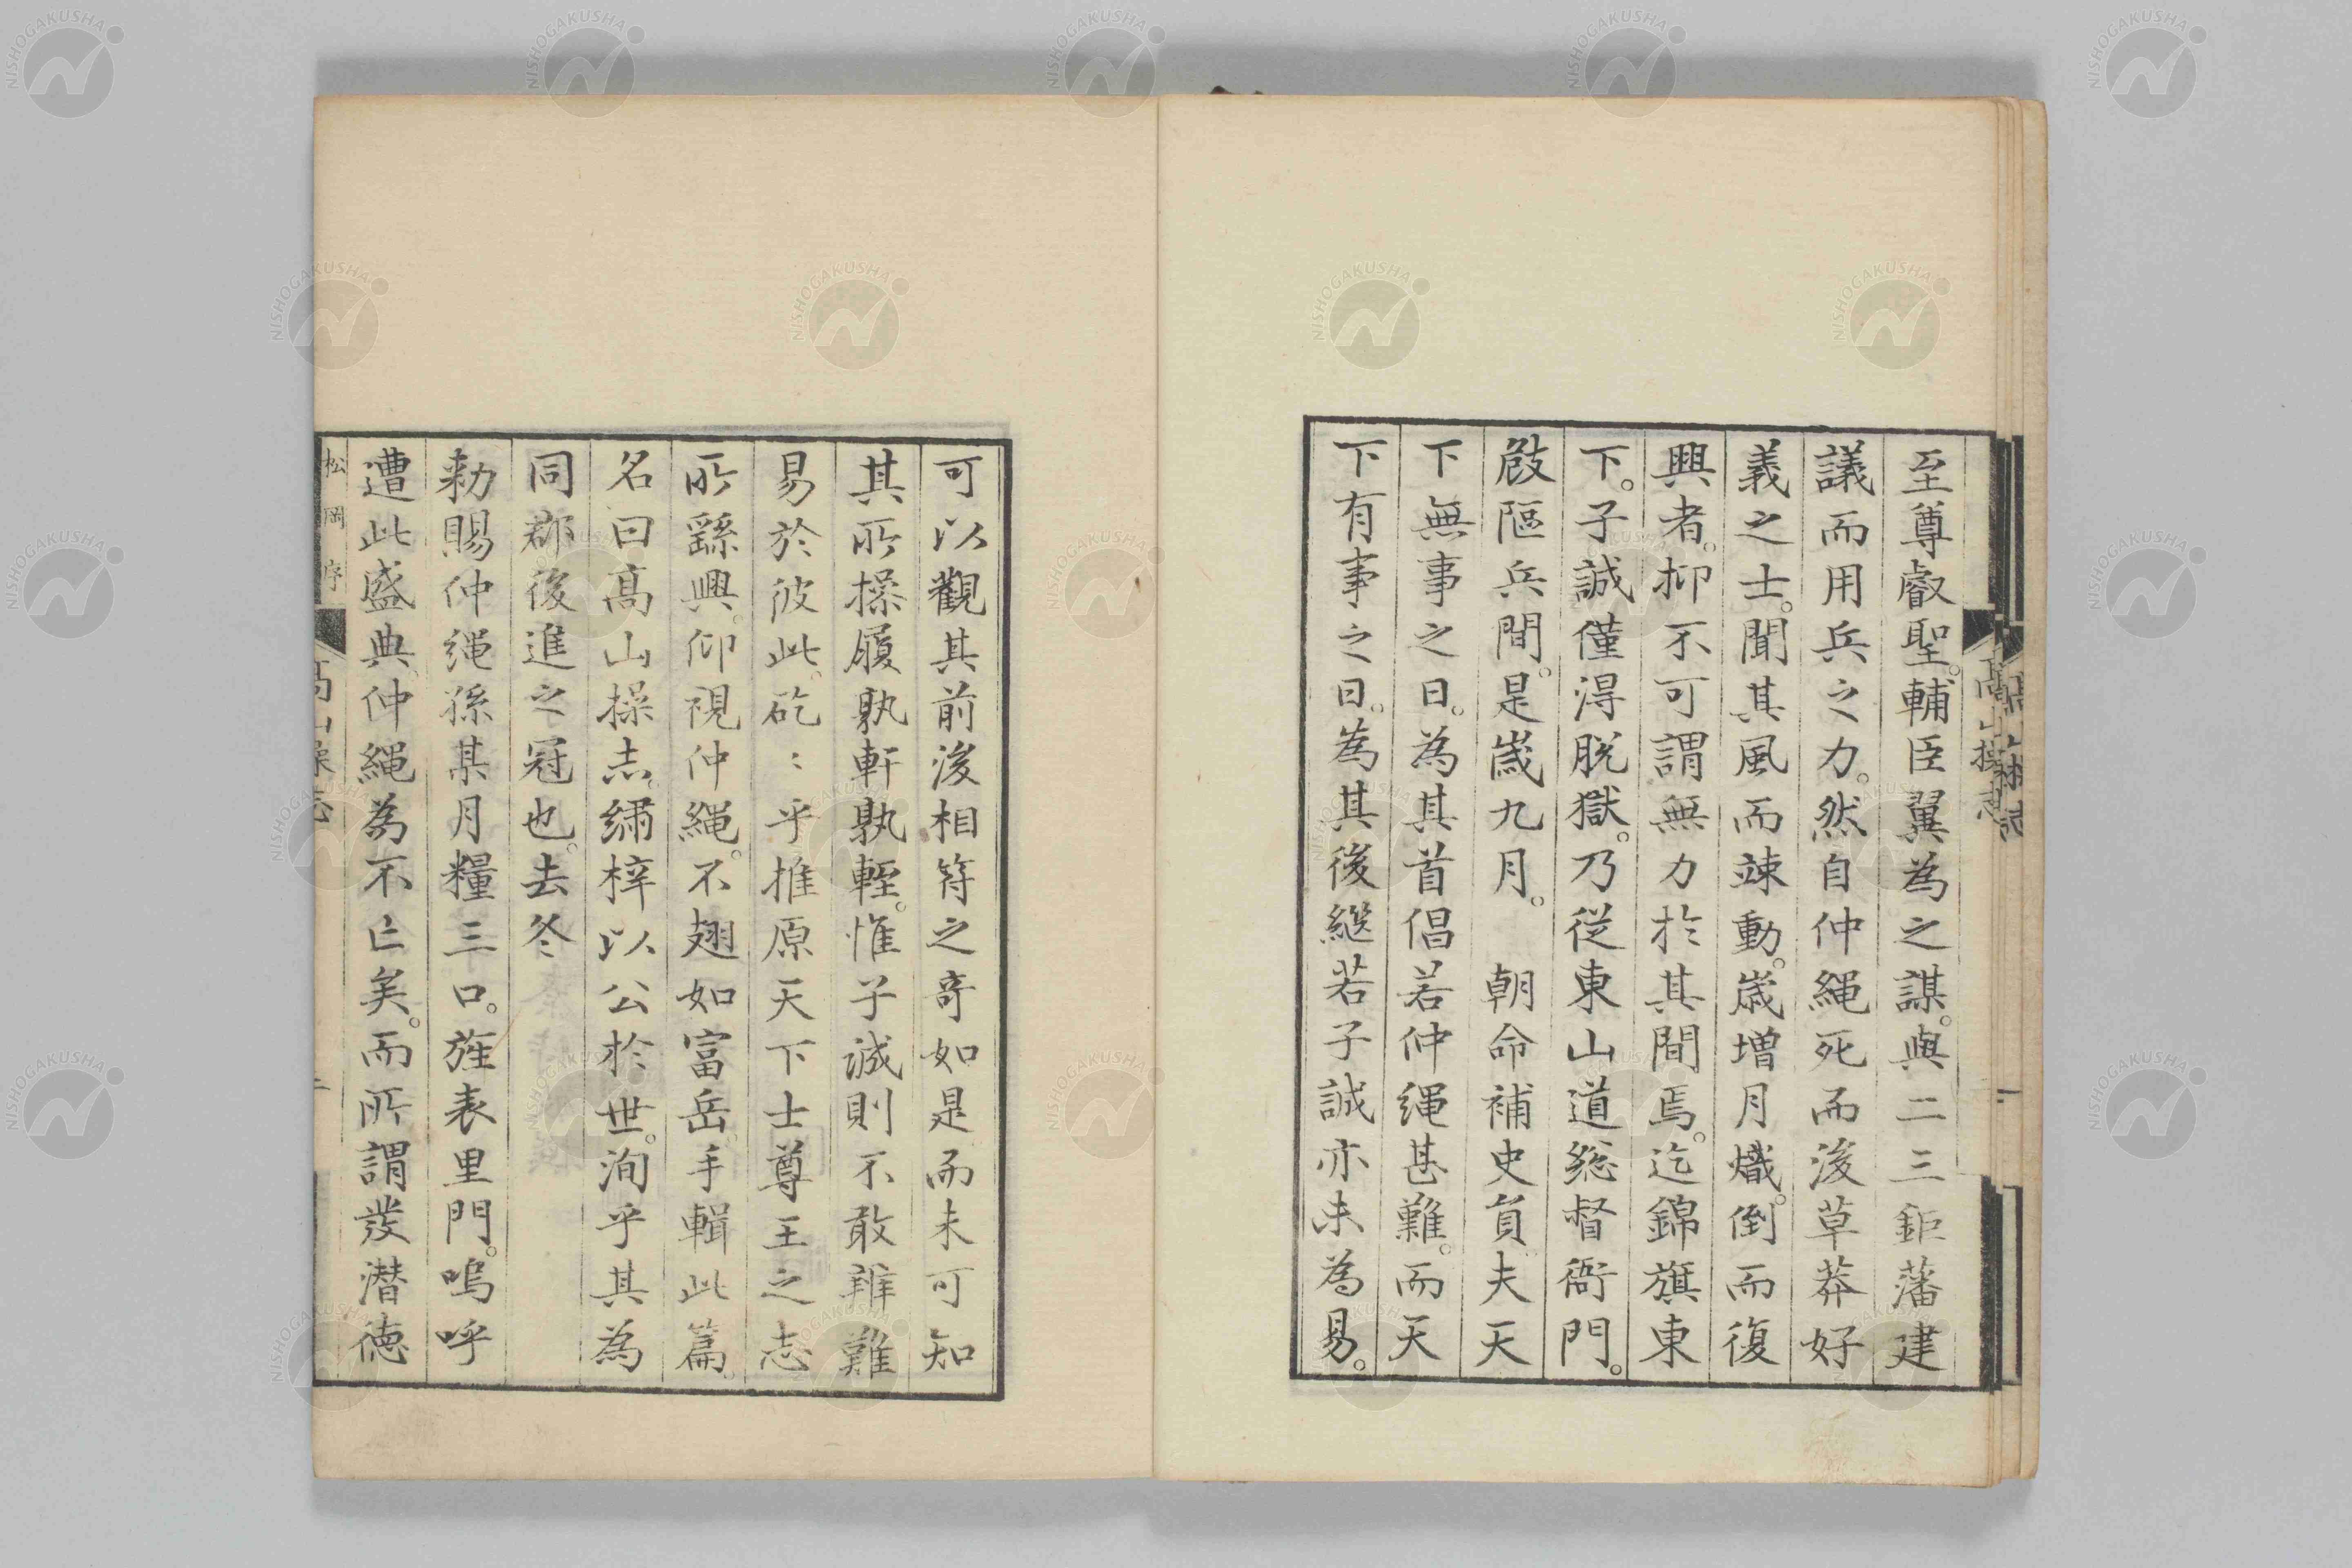 至尊叡聖。輔臣翼為之謀。與二三鉅藩建
議而用兵之力。然自仲繩死而後草莽好
義之士。聞其風而竦動。歲增月熾。倒而復
興者。抑不可謂無力於其間焉。迄錦旗東
下。子誠僅得脫獄。乃從東山道総督衙門。
㪉陘兵間。是歲九月。　朝命補史負夫天
下無事之日。為其首倡若仲繩甚難。而天
下有事之日。為其後継若子誠亦未為易。
高山操志
可以觀其前後相符之奇如是而未可知
其所操履孰軒孰輊。惟子誠則不敢辨難
易於彼此。矻〻乎推原天下士尊王之志
所繇興。仰視仲繩。不翅如富岳。手輯此篇。
名曰高山操志。繡梓以公於世。洵乎其為
同郡後進之冠也。去冬
勅賜仲繩孫某月糧三口。旌表里門。嗚呼
遭此盛典。仲繩為不亡矣。而所謂發潜德
松岡序
高山操志
二